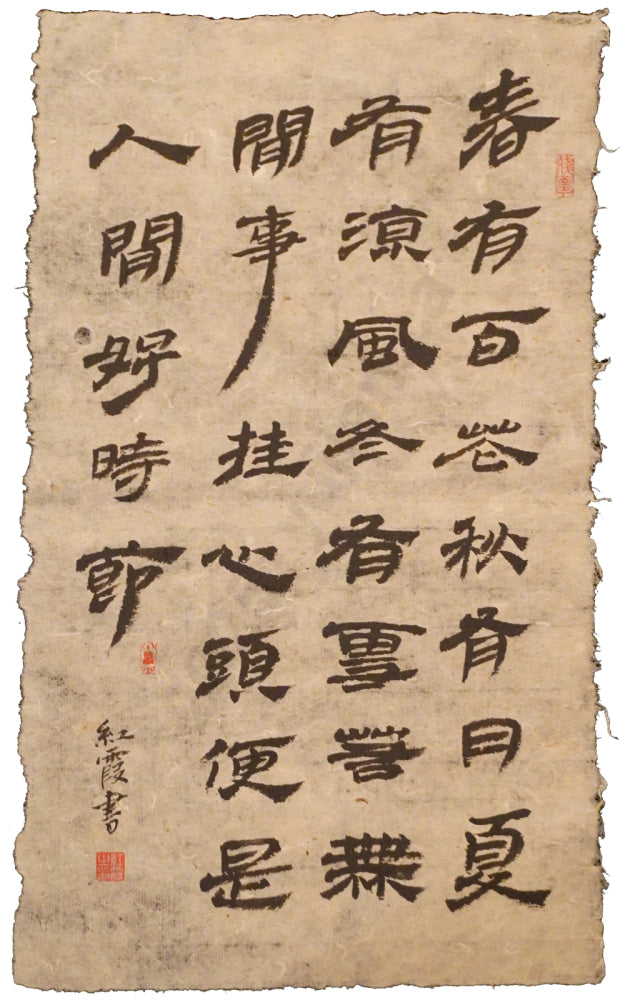 春有百花秋有月夏
有涼風冬有雪若無
閒事挂心頭便是
人間好時節
紅霞書